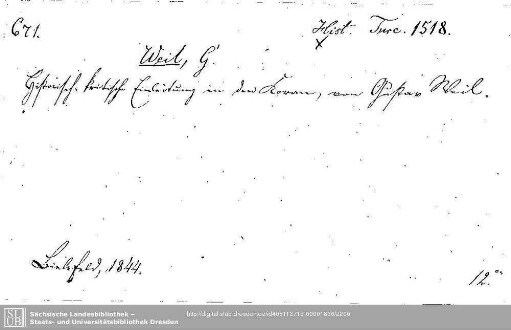 671.
Hist. Turc. 1518.
x
Weil, G.
Historisch-kritische Einleitung in den Koran, von Gustav Weil.
Bielefeld, 1844.
12.°
SLUB
Sächsische Landesbibliothek –
Staats- und Universitätsbibliothek Dresden